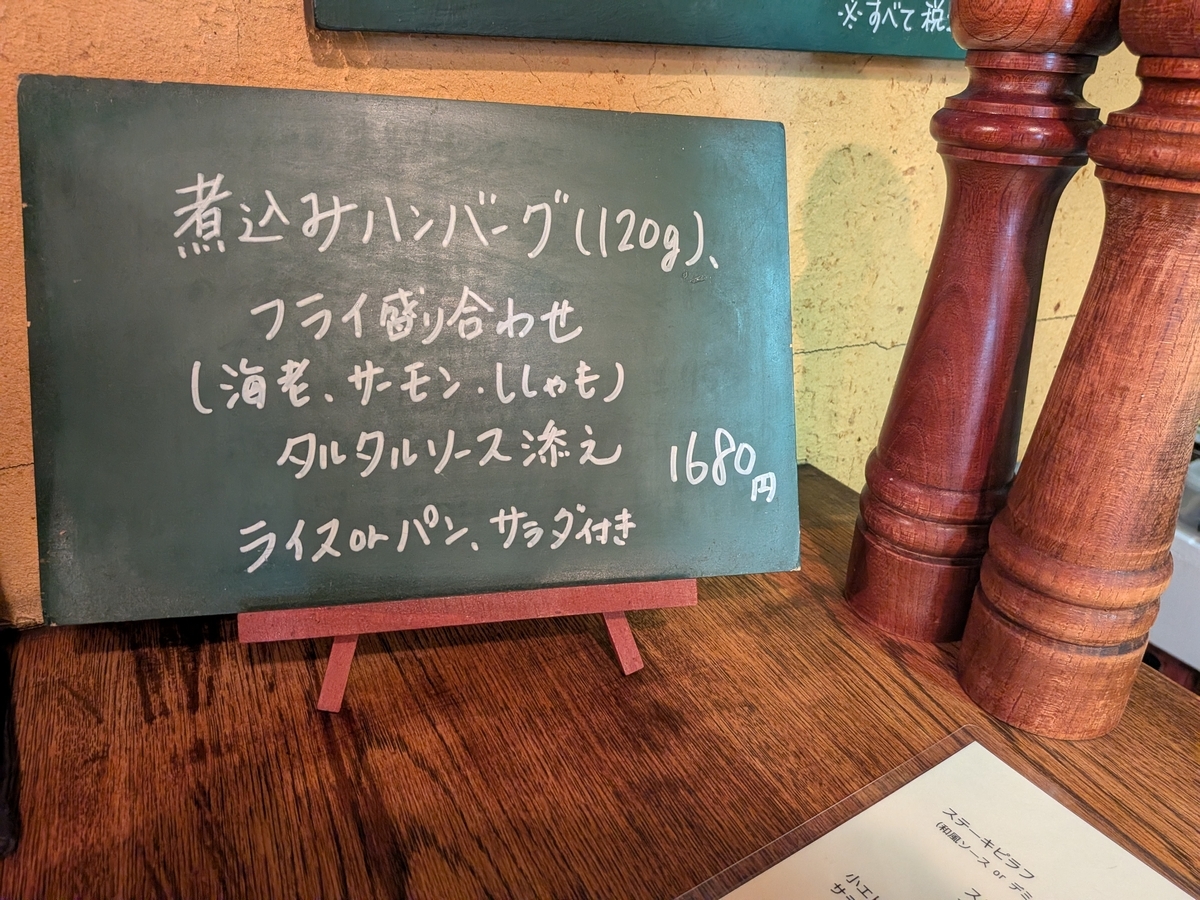 ※すべて税
煮込みハンバーグ(120g)、
フライ盛り合わせ
(海老、サーモン・ししゃも)
タルタルソース添え
1680円
ライスorパン、サラダ付き
ステーキピラフ
(和風ソース or デミ
小エ
ス
サ